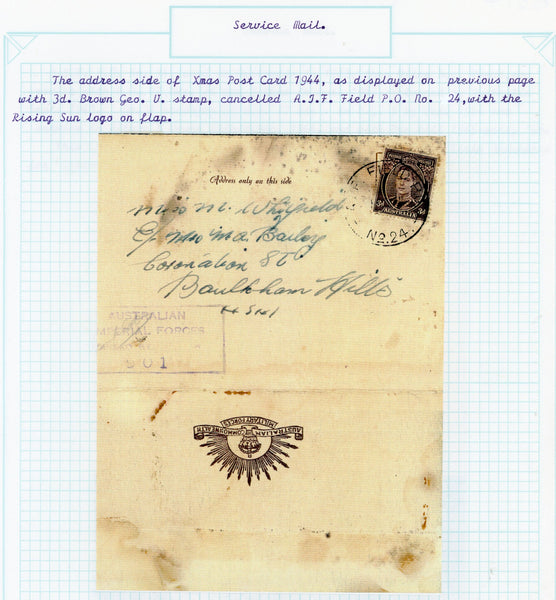 Service Mail.
The address side of Xmas Post Card 1944, as displayed on previous page
with 3d. Brown Geo. V. stamp, cancelled A.I.F. Field P.O. No. 24, with the
Rising Sun logo on flap.
Address only on this side
Miss M. Whitfield
C/- Mrs Ma. Bailey
Coronation St
Baulkham Hills
NSW
3d AUSTRALIA 3d
FIELD
No. 24
AUSTRALIAN
IMPERIAL FORCES
901
AUSTRALIAN COMMONWEALTH
MILITARY FORCES